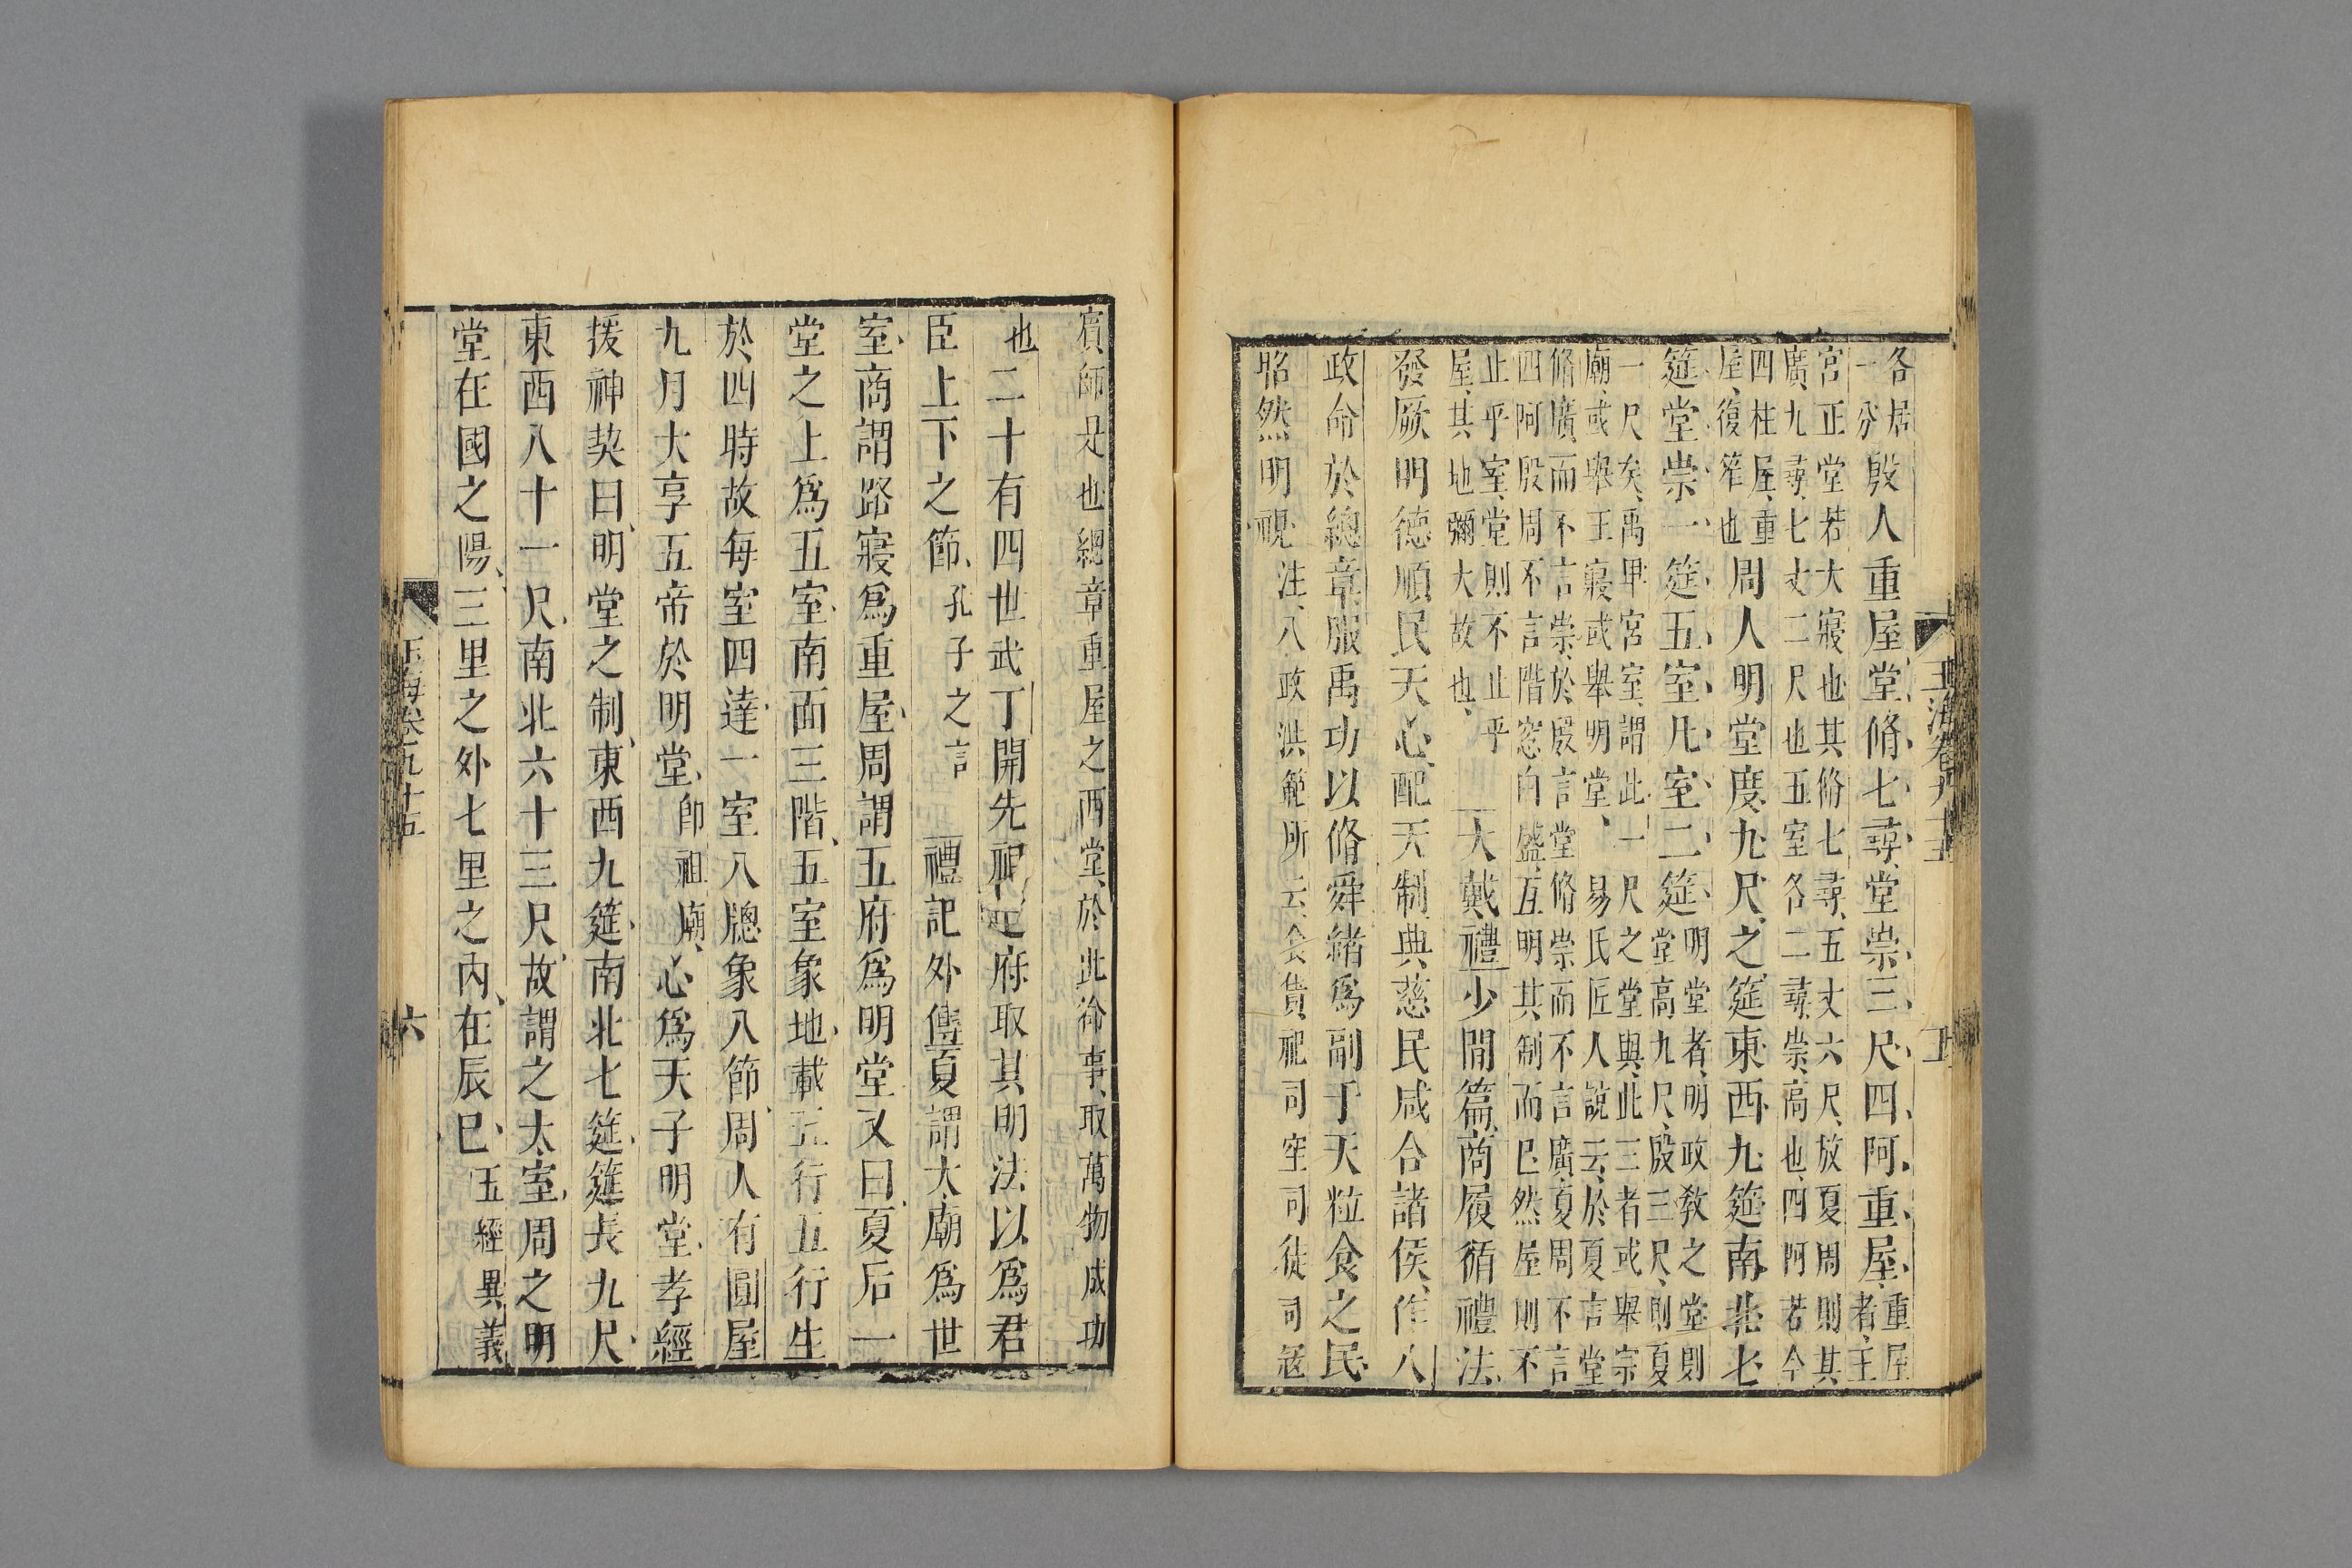 玉海卷九十五 五
各居
一分殷人重屋堂脩七尋堂崇三尺四阿重屋重屋
者王
宮正堂若大寢也其脩七尋五丈六尺放夏周則其
廣九尋七丈二尺也五室各二尋崇高也四阿若今
四柱屋重
屋復笮也周人明堂度九尺之筵東西九筵南北七
筵堂崇一筵五室凡室二筵明堂者明政敎之堂則
堂高九尺殷三尺則夏
一尺矣禹卑宮室謂此一尺之堂與此三者或舉宗
廟或舉王寢或舉明堂 易氏匠人說云於夏言堂
脩廣而不言崇於殷言堂脩崇而不言廣夏周不言
四阿殷周不言階窓白盛互明其制而已然屋則不
止乎室堂則不止乎
屋其地彌大故也 大戴禮少閒篇商履循禮法
發厥明德順民天心配天制典慈民咸合諸侯作八
政命於總章服禹功以脩舜緒爲副于天粒食之民
昭然明視注八政洪範所云食貨祀司空司徒司寇
賓師是也總章重屋之西堂於此命事取萬物成功
也二十有四世武丁開先祖之府取其明法以爲君
臣上下之節孔子之言 禮記外傳夏謂大廟爲世
室商謂路寢爲重屋周謂五府爲明堂又曰夏后一
堂之上爲五室南面三階五室象地載五行五行生
於四時故每室四達一室八牕象八節周人有圓屋
九月大享五帝於明堂卽祖廟心爲天子明堂孝經
援神契曰明堂之制東西九筵南北七筵筵長九尺
東西八十一尺南北六十三尺故謂之太室周之明
堂在國之陽三里之外七里之內在辰巳五經異義
玉海卷九十五 六